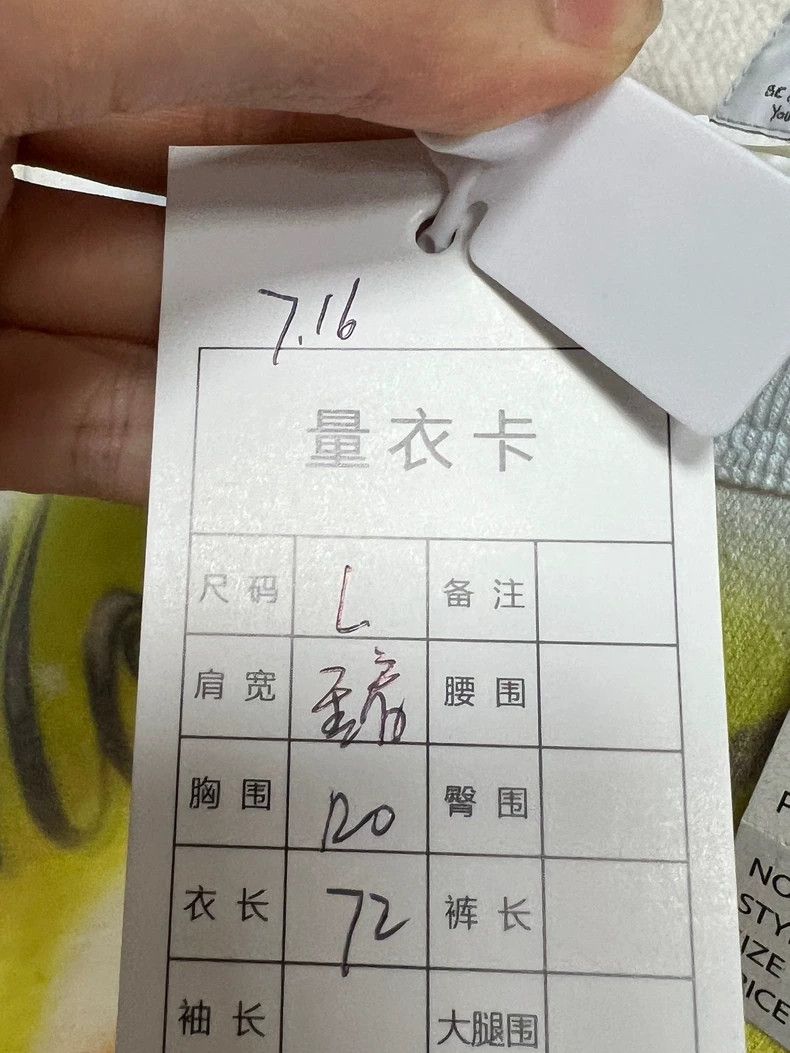 You
7.16
量衣卡
尺码 L 备注
肩宽 垂肩 腰围
胸围 120 臀围
衣长 72 裤长
袖长 大腿围
NO
STY
IZE
ICE